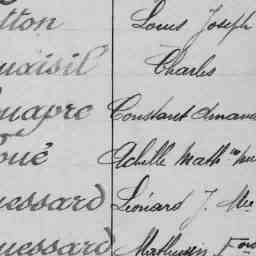 tton Louis Joseph
Charles
Constant Amand
oué Achille Math
uessard Léonard J.
uessard Mathurin